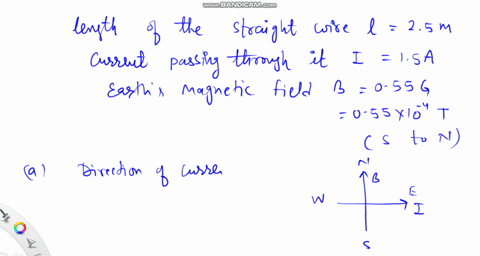 WWW.BANDICAM.COM
length of the straight wire l = 2.5 m
Current passing through it I = 1.5A
Earth's Magnetic field B = 0.55 G
= 0.55 × 10⁻⁴ T
(S to N)
(a) Direction of curre
N
B
W
E
I
S